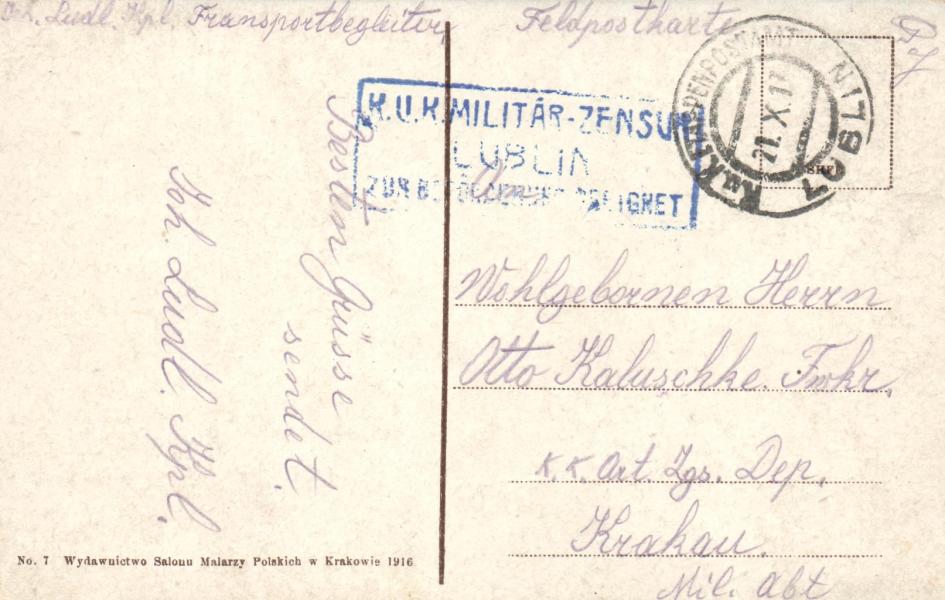 Joh. Ludl. Kpl. Transportbegleiter,
Feldpostkarte
K.U.K. MILITÄR-ZENSUR
LUBLIN
ZUR BEFÖRDERUNG GEEIGNET
K.u.K. ETAPPENPOSTAMT LUBLIN
21.X.17
An
Wohlgebornen Herrn
Otto Kaluschke. Fwkr,
K. K. Art. Zgs. Dep,
Krakau.
Mil. Abt
Besten Grüsse
sendet.
Joh. Ludl. Kpl.
No. 7 Wydawnictwo Salonu Malarzy Polskich w Krakowie 1916